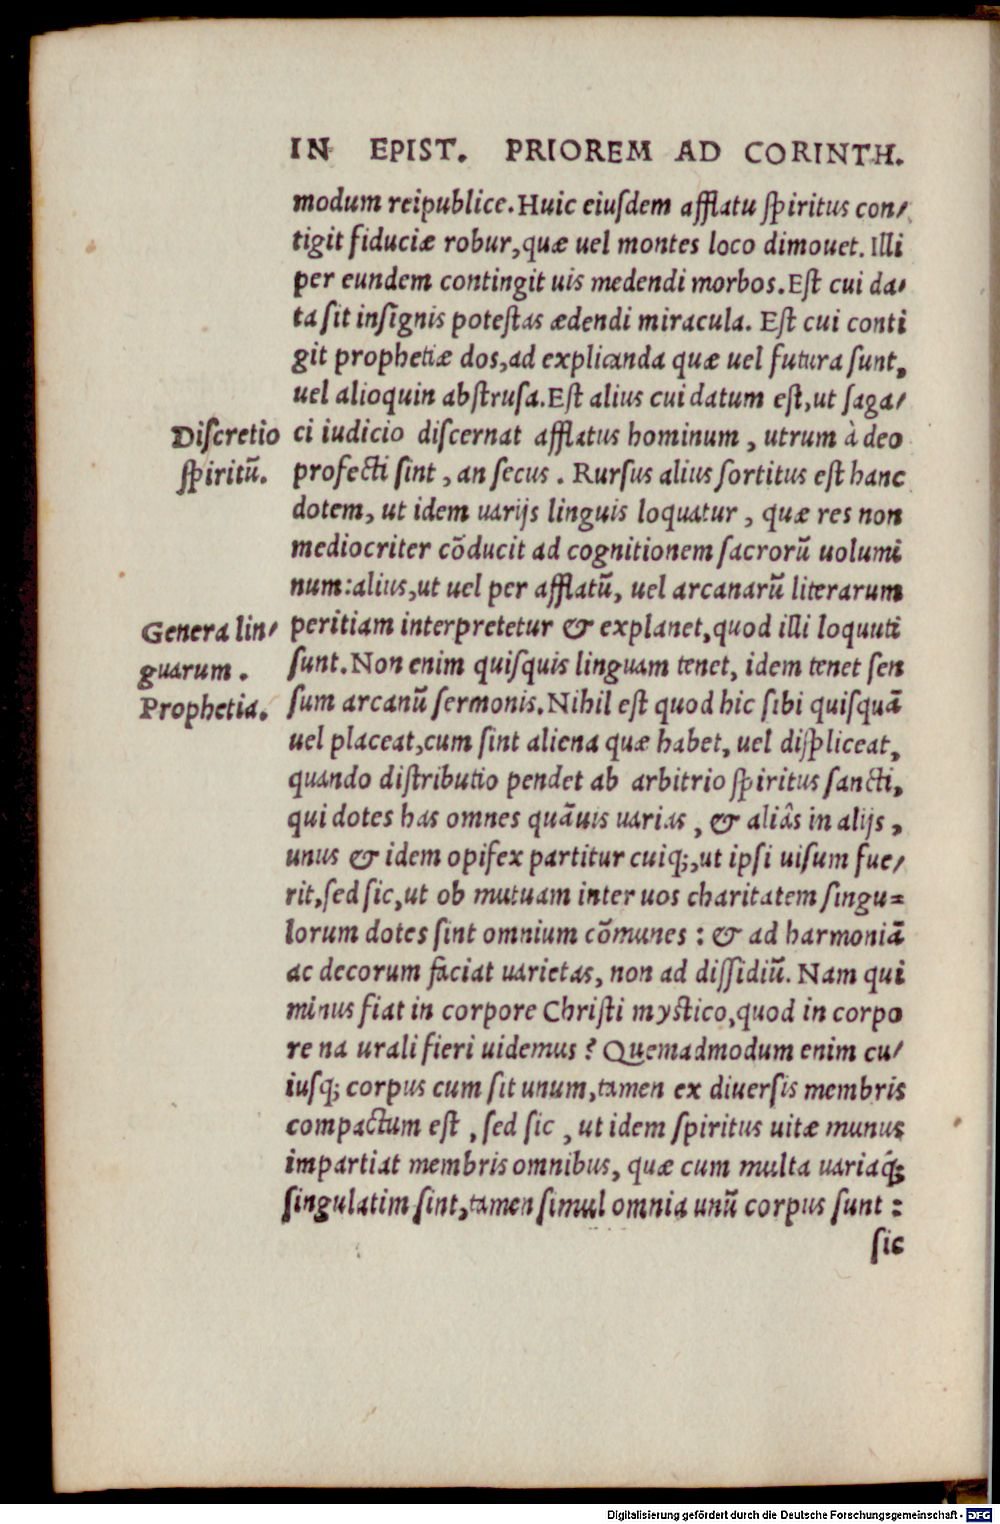 IN EPIST. PRIOREM AD CORINTH.
modum reipublice. Huic eiuſdem afflatu ſpiritus con/
tigit fiduciæ robur, quæ uel montes loco dimouet. Illi
per eundem contingit uis medendi morbos. Eſt cui da/
ta ſit inſignis poteſtas ædendi miracula. Eſt cui conti
git prophetiæ dos, ad explicanda quæ uel futura ſunt,
uel alioquin abſtruſa. Eſt alius cui datum eſt, ut ſaga/
Diſcretio
ſpiritũ.
ci iudicio diſcernat afflatus hominum, utrum à deo
profecti ſint, an ſecus. Rurſus alius ſortitus eſt hanc
dotem, ut idem uarijs linguis loquatur, quæ res non
mediocriter cõducit ad cognitionem ſacrorũ uolumi
num: alius, ut uel per afflatũ, uel arcanarũ literarum
Genera lin/
guarum.
Prophetia.
peritiam interpretetur & explanet, quod illi loquuti
ſunt. Non enim quiſquis linguam tenet, idem tenet ſen
ſum arcanũ ſermonis. Nihil eſt quod hic ſibi quiſquã
uel placeat, cum ſint aliena quæ habet, uel diſpliceat,
quando diſtributio pendet ab arbitrio ſpiritus ſancti,
qui dotes has omnes quãuis uarias, & aliâs in alijs,
unus & idem opifex partitur cuiq;, ut ipſi uiſum fue/
rit, ſed ſic, ut ob mutuam inter uos charitatem ſingu=
lorum dotes ſint omnium cõmunes: & ad harmoniã
ac decorum faciat uarietas, non ad diſſidiũ. Nam qui
minus fiat in corpore Chriſti myſtico, quod in corpo
re na urali fieri uidemus? Quemadmodum enim cu/
iusq; corpus cum ſit unum, tamen ex diuerſis membris
compactum eſt, ſed ſic, ut idem ſpiritus uitæ munus
impartiat membris omnibus, quæ cum multa uariaq́;
ſingulatim ſint, tamen ſimul omnia unũ corpus ſunt:
ſic
Digitalisierung gefördert durch die Deutsche Forschungsgemeinschaft - DFG